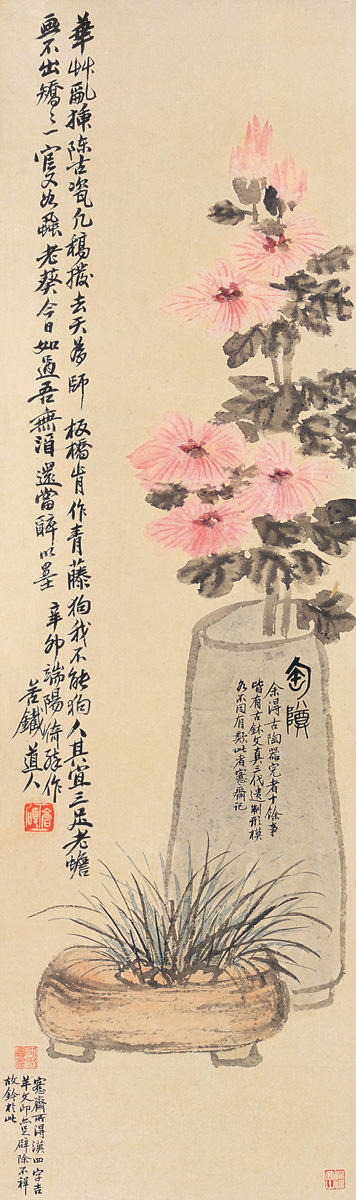 余得古陶器完者十餘事
皆有古鉥文真三代遺制形模
各不同有類此者愙齋記
華艸亂插陳古瓷凡稿撥去天為師板橋肯作青藤狗我不能狗人其宜三足老蟾
畫不出矯〻一官又如老葵今日如過吾無酒還當醉以墨辛卯端陽倚醉作
苦鐵道人
倉碩
愙齋所得漢四字吉
羊文印亦足辟除不祥
故鈐於此